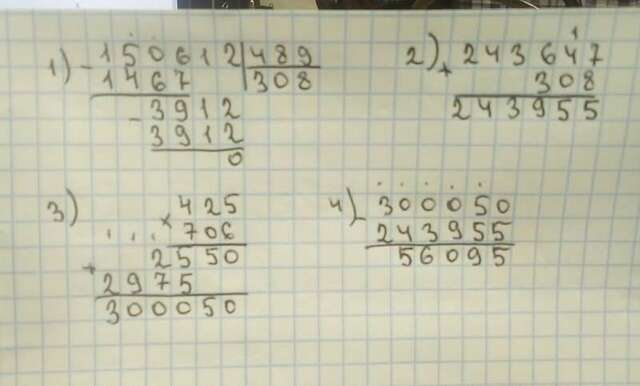 1) - 150612 | 489
1467 | 308
- 3912
3912
0
2) + 243647
308
243955
3) × 425
706
+ 2550
2975
300050
4) - 300050
243955
56095